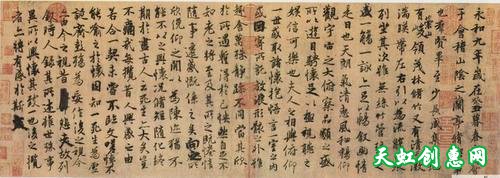 永和九年歲在癸丑暮春之初會
于會稽山陰之蘭亭脩禊事
也群賢畢至少長咸集此地
有崇山峻領茂林脩竹又有清流激
湍暎帶左右引以為流觴曲水
列坐其次雖無絲竹管弦之
盛一觴一詠亦足以暢敘幽情
是日也天朗氣清惠風和暢仰
觀宇宙之大俯察品類之盛
所以遊目騁懷足以極視聽之
娛信可樂也夫人之相與俯仰
一世或取諸懷抱悟言一室之內
或因寄所託放浪形骸之外雖
趣舍萬殊靜躁不同當其欣
於所遇蹔得於己怏然自足不
知老之將至及其所之既惓情
隨事遷感慨係之矣向之所
欣俛仰之閒以為陳迹猶不
能不以之興懷況脩短隨化終
期於盡古人云死生亦大矣豈
不痛哉每攬昔人興感之由
若合一契未嘗不臨文嗟悼不
能喻之於懷固知一死生為虛
誕齊彭殤為妄作後之視今
亦由今之視昔悲夫故列
敘時人錄其所述雖世殊事
異所以興懷其致一也後之攬
者亦將有感於斯
天虹创意网